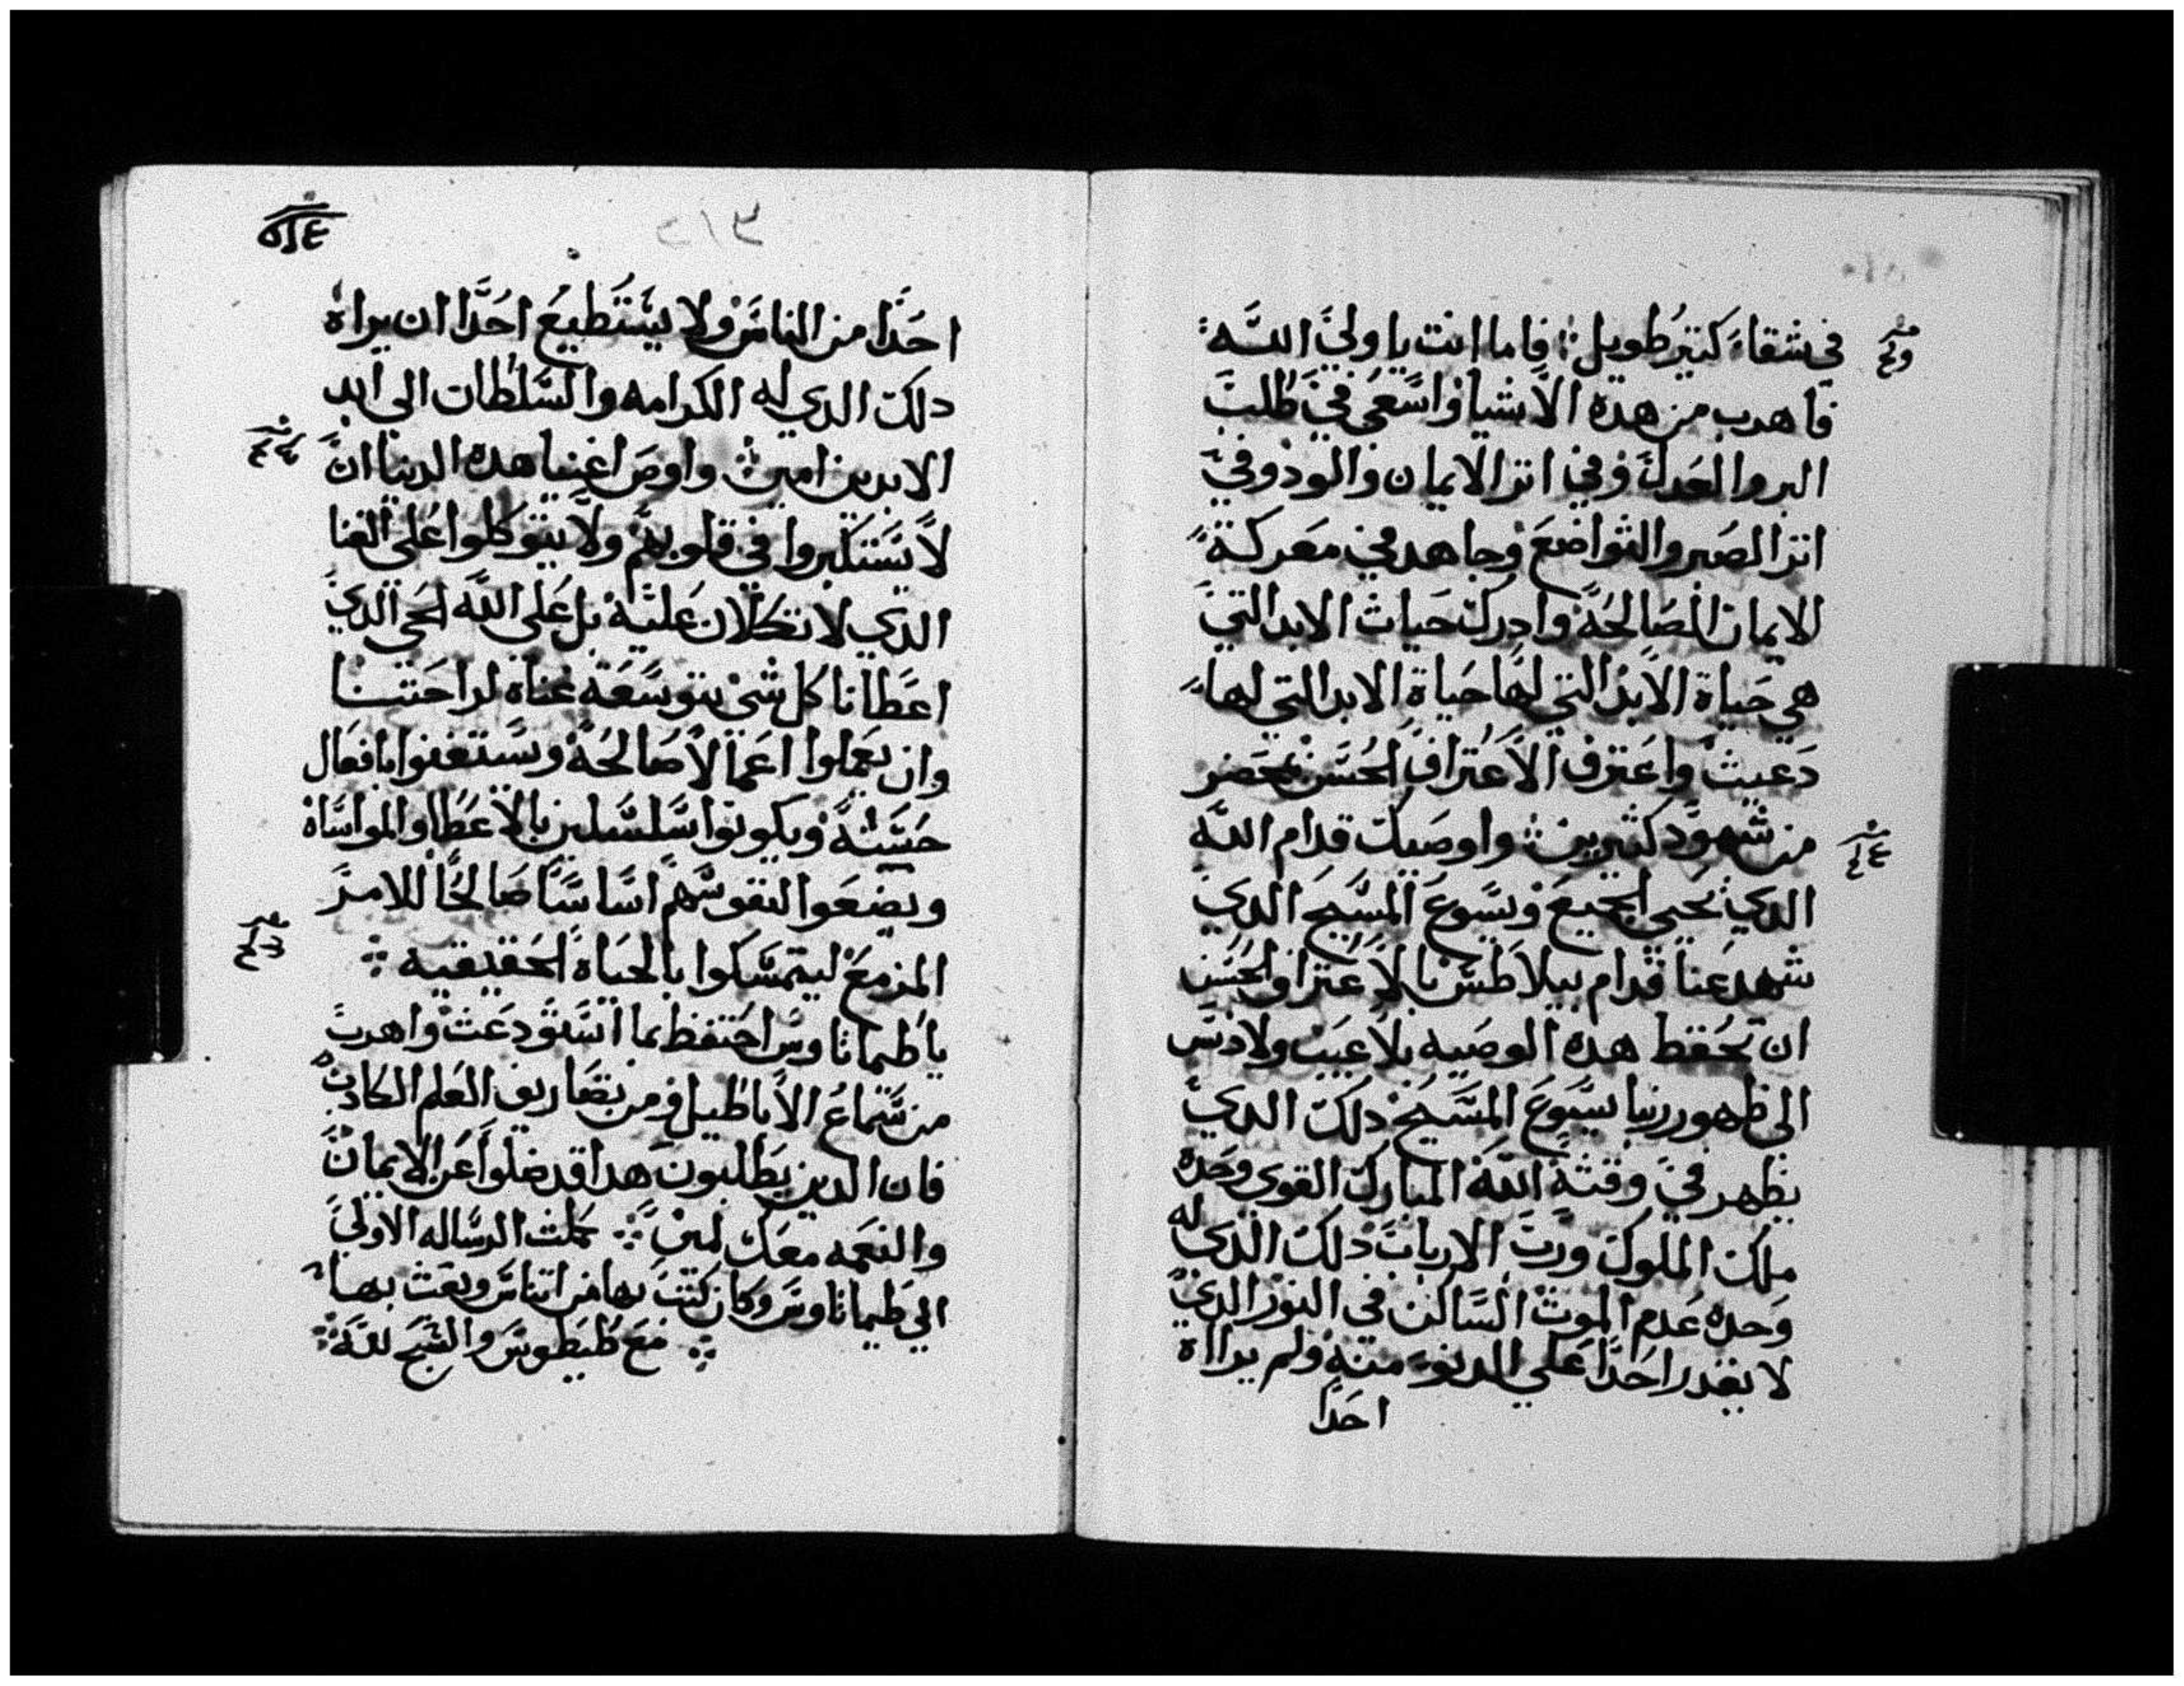 في شقاء كتير طويل فاما انت يا ولي الله
فاهرب من هده الاشيا واسعى في طلب
البر والعدل وفي اتر الايمان والود وفي
اتر الصبر والتواضع وجاهد في معركة
الايمان الصالحة وادرك حيات الابد التي
هي حياة الابد التي لها حياة الابد التي لها
دعيت واعترف الاعتراف الحسن بمحضر
من شهود كثيرين واوصيك قدام الله
الدي يحيى الجميع ويسوع المسيح الدي
شهد عنا قدام بيلاطس بالاعتراف الحسن
ان تحفظ هده الوصيه بلا عيب ولا دنس
الى ظهور ربنا يسوع المسيح دلك الدي
يظهر في وقته الله المبارك القوي وحده
ملك الملوك ورب الارباب دلك الدي له
وحده عدم الموت الساكن في النور الدي
لا يقدر احدا علي الدنو منه ولم يرااه
احدا
٥١٤
احدا من الناس ولا يستطيع احدا ان يراه
دلك الدي له الكرامه والسلطان الى ابد
الابدين امين واوص اغنيا هده الدنيا ان
لا يستكبروا في قلوبهم ولا يتوكلوا على الغنا
الدي لا تكلان عليه بل على الله الحي الدي
اعطانا كل شي بتوسعة غناه لراحتنا
وان يعملوا اعمالا صالحة ويستغنوا بافعال
حسنة ويكونوا سلسلين بالاعطا والمواساه
ويضعوا لنفوسهم اساسا صالحا للامر
المزمع ليتمسكوا بالحياة الحقيقيه
يا طيماتاوس احتفظ بما استودعت واهرب
من سماع الاباطيل ومن تصاريف العلم الكادب
فان الدين يطلبون هدا قد ضلوا عن الايمان
والنعمه معك امين كملت الرساله الاولي
الي طيماتاوس وكان كتب بها من اتناس وبعث بها
مع طيطوس والسبح لله